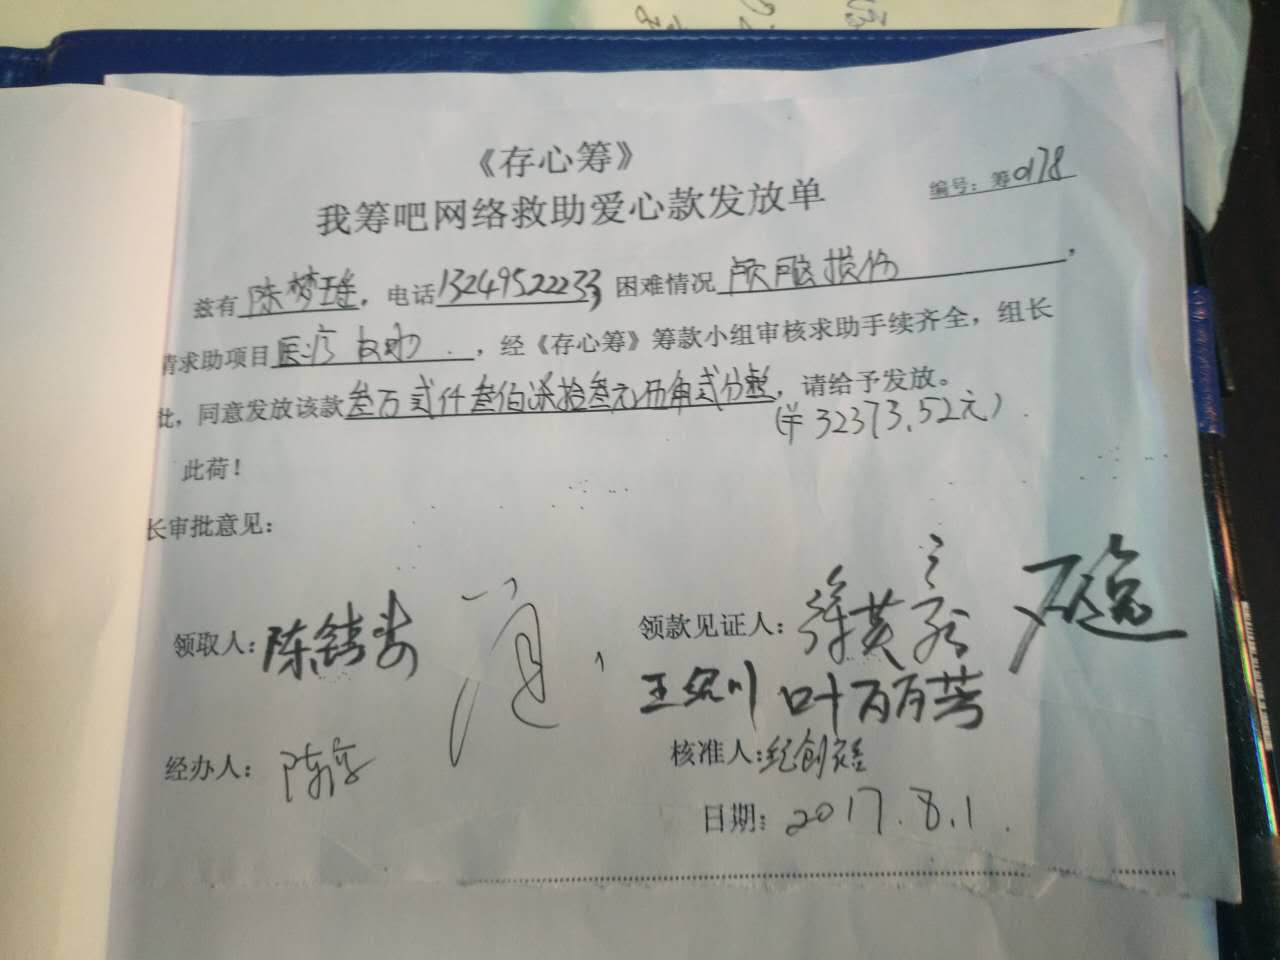 《存心筹》
我筹吧网络救助爱心款发放单
编号：筹0178
兹有陈梦瑶，电话13249522233，困难情况颅脑损伤，
请求助项目医疗救助，经《存心筹》筹款小组审核求助手续齐全，组长
批，同意发放该款叁万贰仟叁佰柒拾叁元伍角贰分整，请给予发放。
(￥32373.52元)
此荷！
长审批意见：
领取人：陈
领款见证人：
王绍川 叶丽芳
经办人：陈
核准人：纪创
日期：2017.8.1